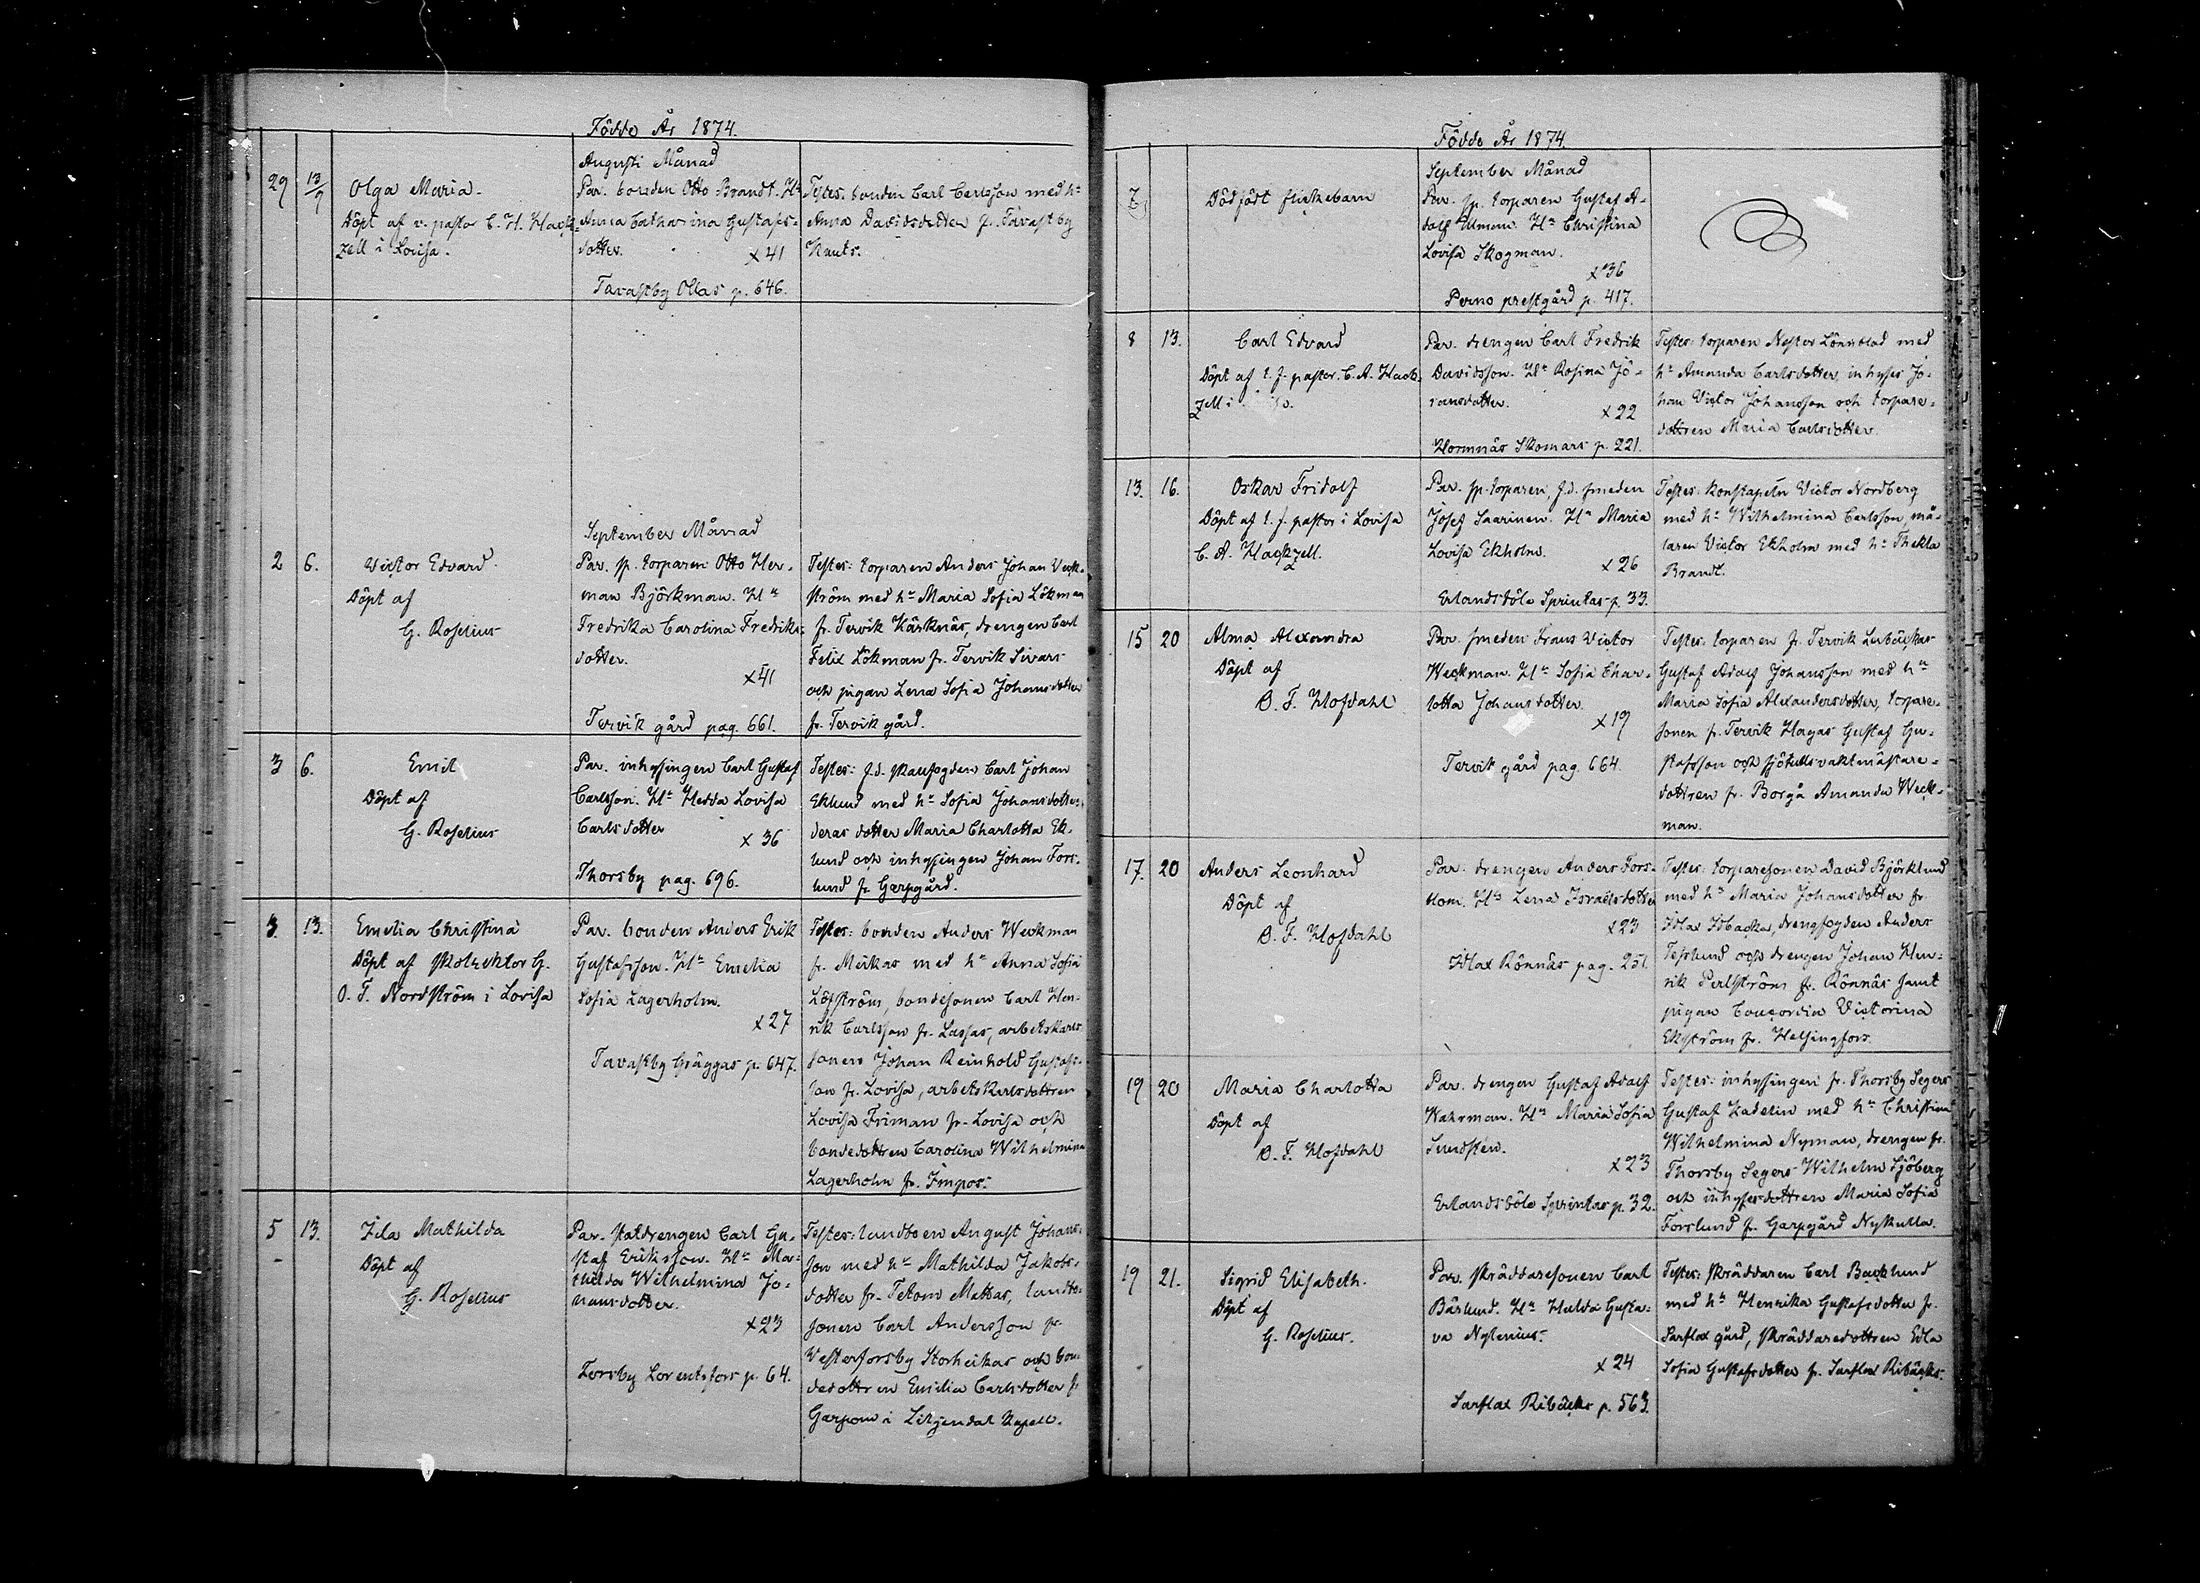 Födde År 1874.
Augusti Månad
29 13/9 Olga Maria.
Döpt af v. pastor C. H. Hack-
zell i Lovisa.
Par. bonden Otto Brandt. Hu
Anna Catharina Gustafs-
dotter. x 41
Tavastby Ollas p. 646.
Testes: bonden Carl Carlsson med hu
Anna Davidsdotter fr. Tavastby
Knuts.
September Månad
2 6. Victor Edvard.
Döpt af
G. Roselius
Par. sp. torparen Otto Her-
man Björkman. Hu
Fredrika Carolina Fredriks-
dotter.
x 41
Tervik gård pag. 661.
Testes: torparen Anders Johan Weck-
ström med hu Maria Sofia Lökman
fr. Tervik Kärknäs, drengen Carl
Felix Lökman fr. Tervik Sivars
och pigan Lena Sofia Johansdotter
fr. Tervik gård.
3 6. Emil
Döpt af
G. Roselius
Par. inhysingen Carl Gustaf
Carlsson. Hu Hedda Lovisa
Carlsdotter x 36
Thorsby pag. 696.
Testes: f.d. skaufogden Carl Johan
Eklund med hu Sofia Johansdotter,
deras dotter Maria Charlotta Ek-
lund och inhysingen Johan Fors-
lund fr Garpgård.
3. 13. Emelia Christina
Döpt af skolrektor G.
O. F. Nordström i Lovisa
Par. bonden Anders Erik
Gustafsson. Hu Emelia
Sofia Lagerholm.
x 27
Tavastby Gräggas p. 647.
Testes: bonden Anders Weckman
fr. Mickas med hu Anna Sofia
Löfström, bondesonen Carl Hen-
rik Carlsson fr. Lassas, arbetskarls-
sonen Johan Reinhold Gustafs-
son fr. Lovisa, arbetskarlsdottren
Lovisa Friman fr. Lovisa och
bondedottren Carolina Wilhelmina
Lagerholm fr. Impos:
5 13. Ida Mathilda
Döpt af
G. Roselius
Par. statdrengen Carl Gu-
staf Eriksson. Hu Ma-
thilda Wilhelmina Jo-
hansdotter.
x 23
Forsby Lorentsfors p. 64.
Testes: landboen August Johans-
son med hu Mathilda Jakobs-
dotter fr. Tetom Mattas, landbo-
sonen Carl Andersson fr
Vesterforsby Storheikas och bon-
dedottren Emilia Carlsdotter fr
Garpom i Liljendal Kapell.
Födde År 1874.
September Månad
7 Dödfödt flickebarn
Par. sp. torparen Gustaf A-
dolf Uman. Hu Christina
Lovisa Skogman.
x 36
Perno prestgård p. 417.
8 13. Carl Edvard
Döpt af t.f. pastor. C. A. Hack-
zell i
Par. drengen Carl Fredrik
Davidsson. Hu Rosina Jö-
ransdotter.
x 22
Hormnäs Skomars p. 221.
Testes: torparen Nestor Lönnblad med
hu Amanda Carlsdotter, inhyses Jo-
han Victor Johansson och torpare-
dottren Maria Carlsdotter.
13. 16. Oskar Fridolf
Döpt af t.f. pastor i Lovisa
C. A. Hackzell.
Par. sp. torparen, f.d. smeden
Josef Saarinen. Hu Maria
Lovisa Ekholm.
x 26
Erlandsböle Sprintas p. 33.
Testes: konstapeln Victor Nordberg
med hu Wilhelmina Carlsson, må-
laren Victor Ekholm med hu Thekla
Brandt.
15 20 Alma Alexandra
Döpt af
O. F. Hofdahl
Par. smeden Frans Victor
Weckman. Hu Sofia Char-
lotta Johansdotter.
x 19
Tervik gård pag. 664.
Testes: torparen fr. Tervik Lubäckas
Gustaf Adolf Johansson med hu
Maria Sofia Alexandersdotter, torpare-
sonen fr. Tervik Hagas Gustaf Gu-
stafsson och sjötullsvaktmästare-
dottren fr. Borgå Amanda Weck-
man.
17. 20 Anders Leonhard
Döpt af
O. F. Hofdahl
Par. drengen Anders Fors-
blom. Hu Lena Israelsdotter
x 23
Idlax Rönnäs pag. 251.
Testes: torparesonen David Björklund
med hu Maria Johansdotter fr
Idlax Idbacka, drengfogden Anders
Teslund och drengen Johan Hen-
rik Perlström fr. Rönnäs samt
pigan Concordia Victorina
Ekström fr. Helsingfors.
19 20 Maria Charlotta
Döpt af
O. F. Hofdahl
Par. drengen Gustaf Adolf
Wahrman. Hu Maria Sofia
Sundsten.
x 23
Erlandsböle Sprintas p. 32.
Testes: inhysingen fr. Thorsby Segers
Gustaf Kadelin med hu Christina
Wilhelmina Nyman, drengen fr.
Thorsby Segers Wilhelm Sjöberg
och inhysesdottren Maria Sofia
Forslund fr. Garpgård Nykulla.
19 21. Sigrid Elisabeth.
Döpt af
G. Roselius.
Par. skräddaresonen Carl
Bärlund. Hu Hulda Gusta-
va Nylenius.
x 24
Sarflax Ribäcks p. 563.
Testes: skräddaren Carl Backlund
med hu Henrika Gustafsdotter fr.
Sarflax gård, skräddaredottren Edla
Sofia Gustafsdotter fr. Sarflax Ribäcks.